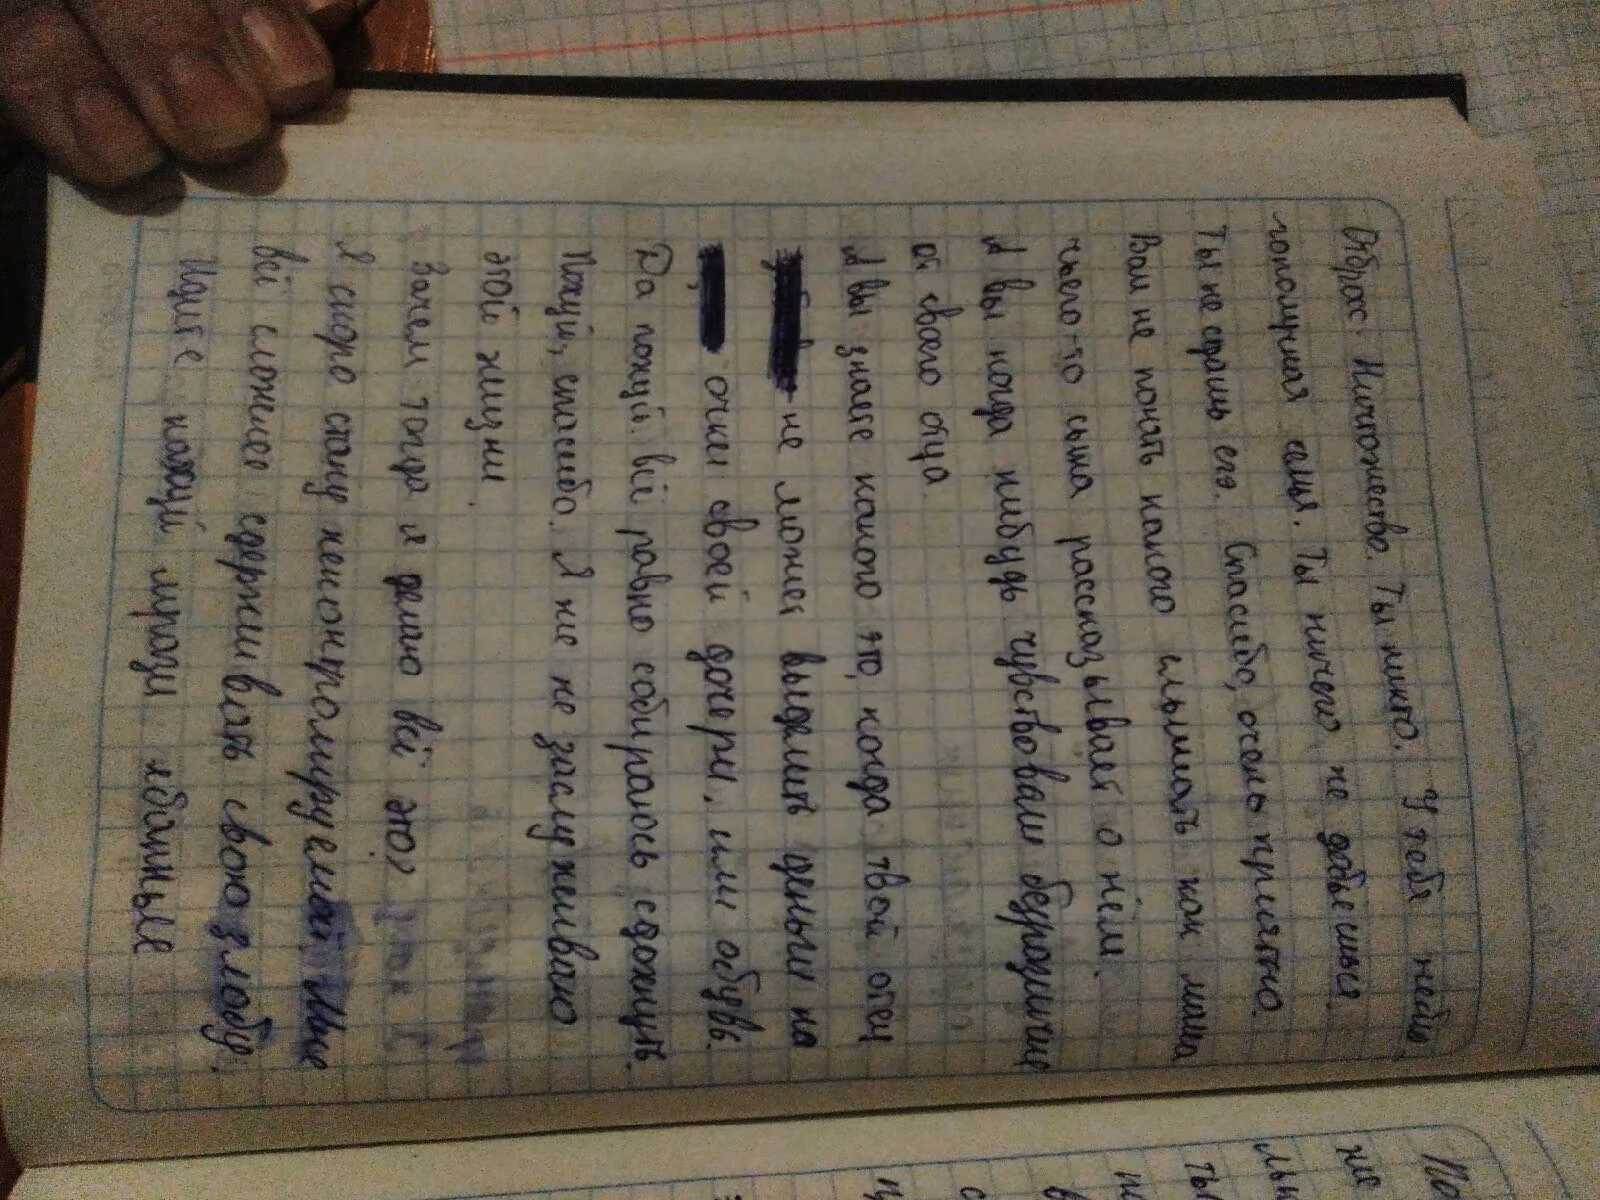 Отброс. Ничтожество. Ты никто. У тебя непол-
гополучная семья. Ты ничего не добьешься.
Ты не стоишь его. Спасибо, очень приятно.
Вам не понять какого слышать как мама
чьего-то сына рассказывает о нём.
А вы когда нибудь чувствовали безразличие
от своего отца.
А вы знаете какого это, когда твой отец
не может выделить деньги на
очки своей дочери, или обувь.
Да похуй. всё равно собиралась сдохнуть.
Похуй, спасибо. Я не не заслуживаю
этой жизни.
Зачем тогда я решаю всё это?
Я скоро стану неконтролируемой. Мне
всё сложнее сдерживать свою злобу.
Идите нахуй мрази ебанные